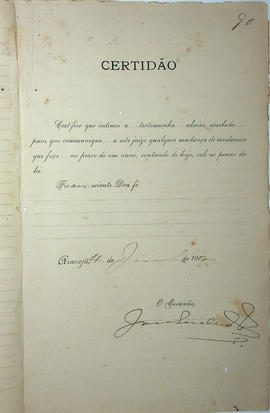 90
CERTIDÃO
Certifico que intimei a testemunha abaixo arrolada
para que communique a este juizo qualquer mudança de residencia
que faça no praso de um anno, contando de hoje, sob as penas da
lei.
sciente Dou fé
Aracajú, de de 19
O Escrivão,